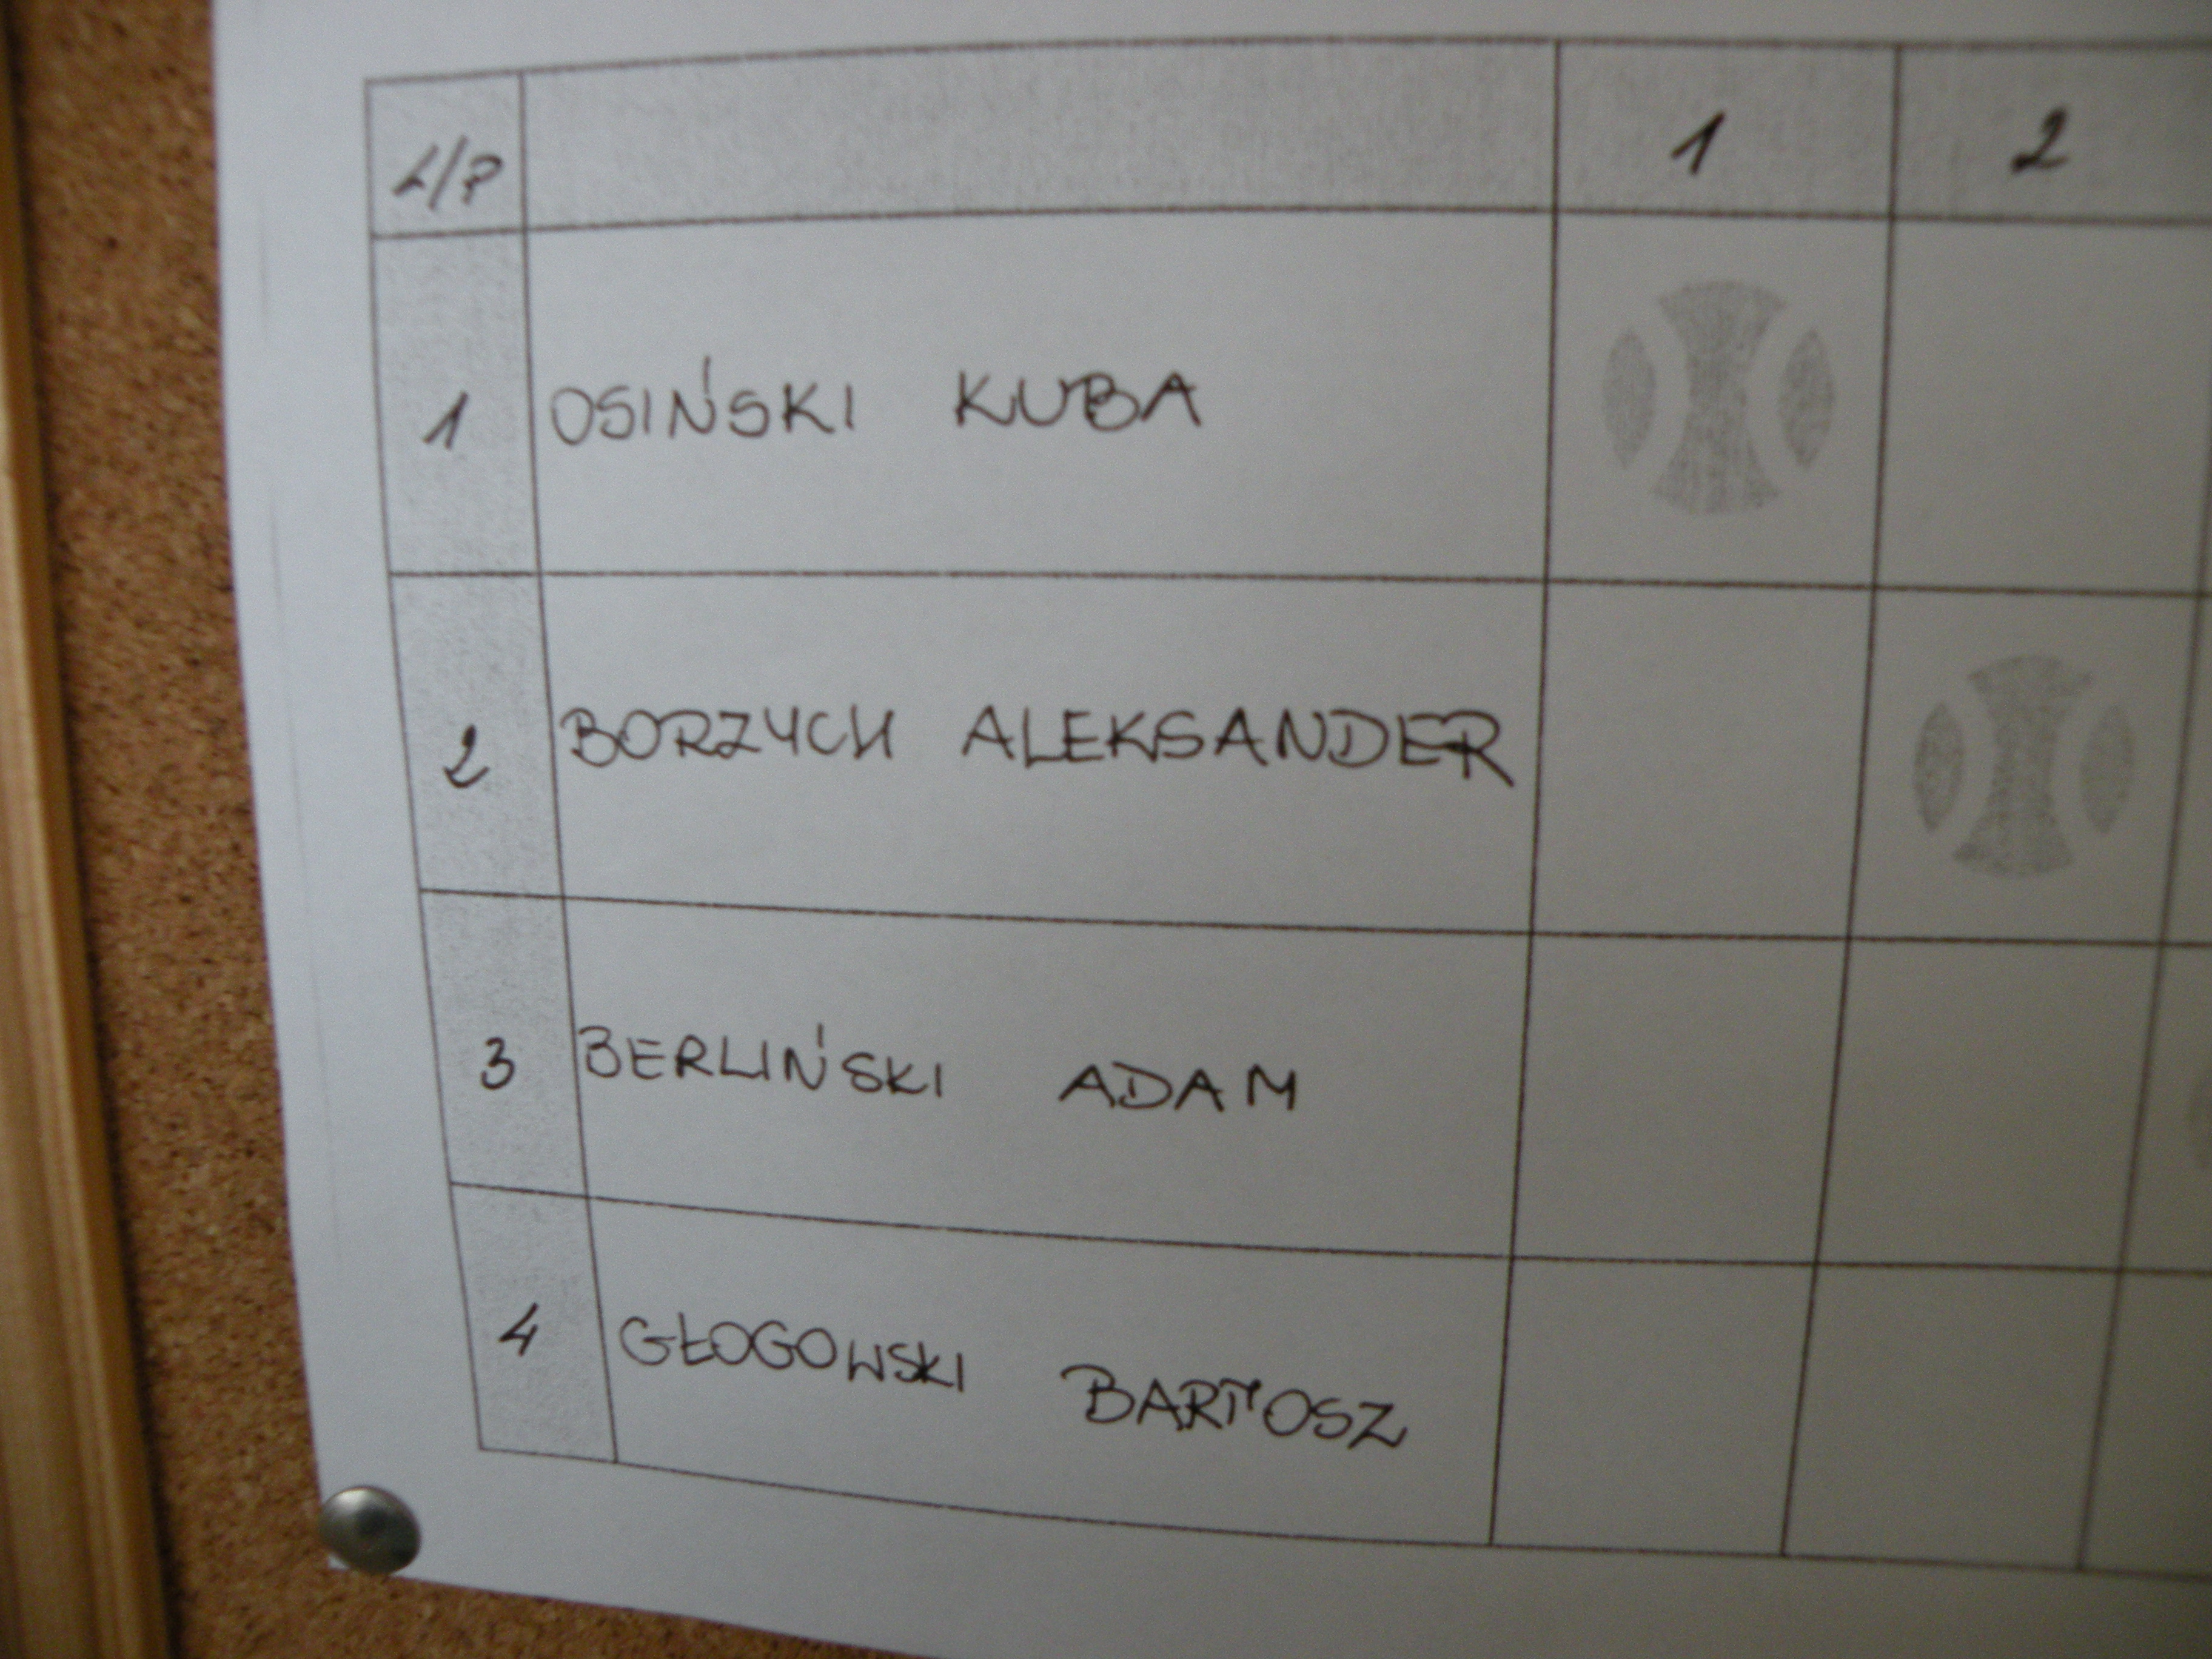 L/P 1 2
1 OSIŃSKI KUBA
2 BORZYCH ALEKSANDER
3 BERLIŃSKI ADAM
4 GŁOGOWSKI BARTOSZ